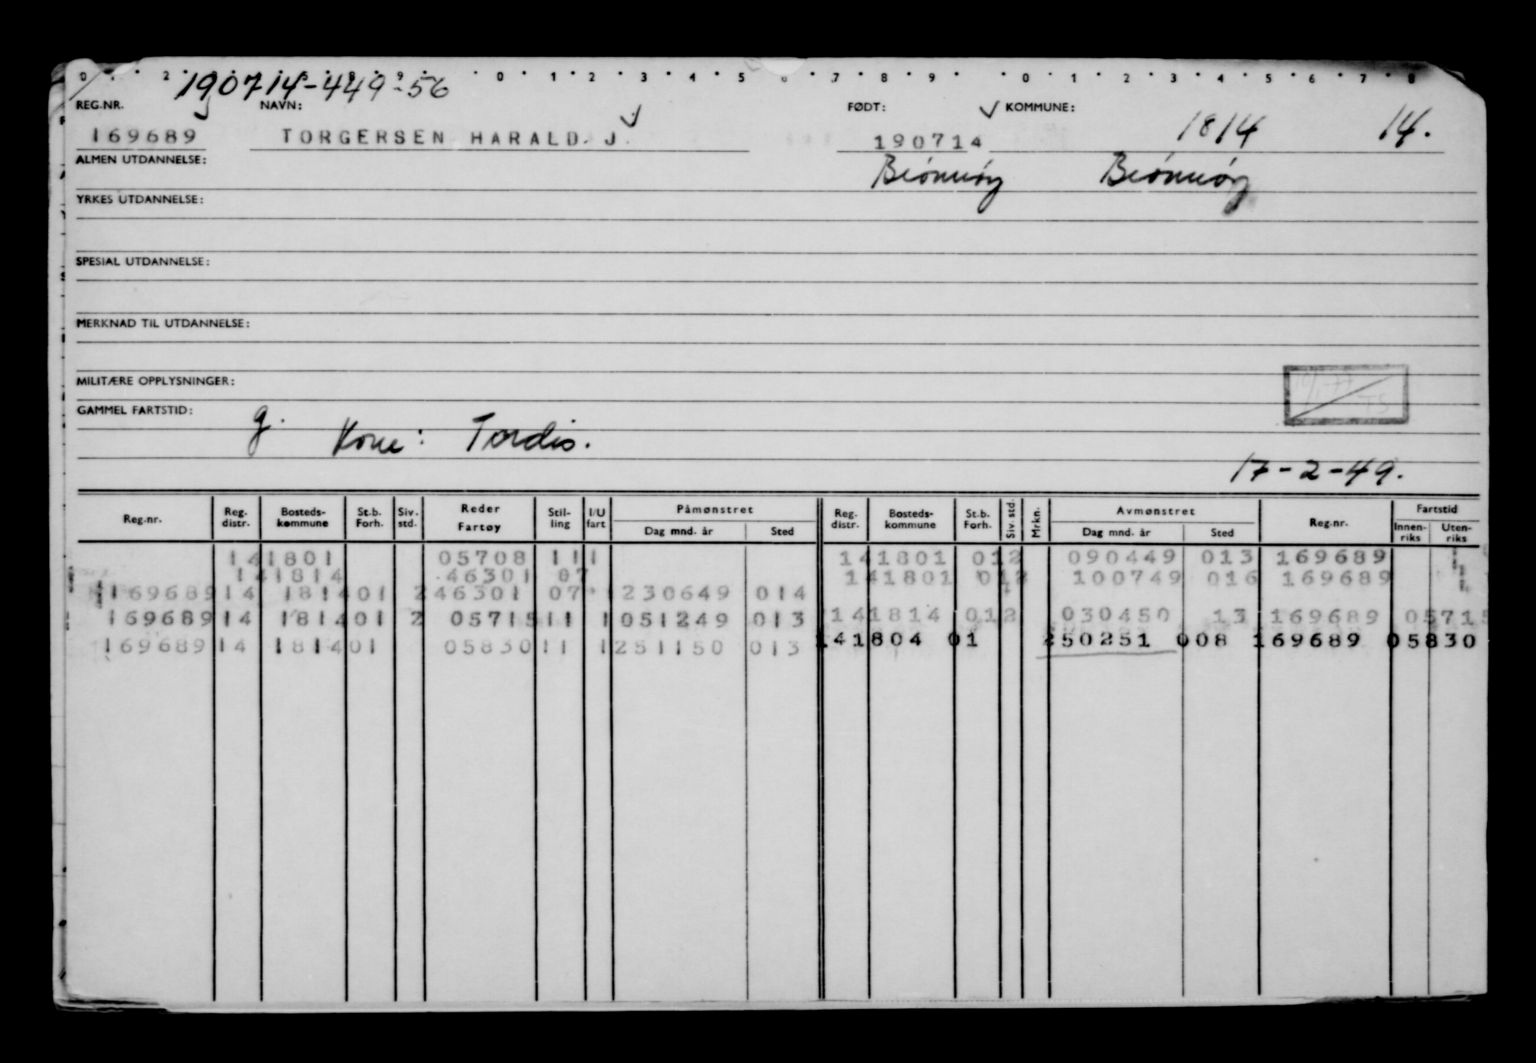 190714-449-56
REG.NR. NAVN: FØDT: KOMMUNE:
169689 TORGERSEN HARALD J. 190714 1814 14.
ALMEN UTDANNELSE: Brönnöy Brönnöy
YRKES UTDANNELSE:
SPESIAL UTDANNELSE:
MERKNAD TIL UTDANNELSE:
MILITÆRE OPPLYSNINGER:
GAMMEL FARTSTID:
g. Kone: Tordis.
17-2-49.
Reg.nr. Reg. distr. Bosteds- kommune St.b. Forh. Siv. std. Reder Fartøy Stil- ling I/U fart Påmønstret Dag mnd. år Sted Reg- distr. Bosteds- kommune St.b. Forh. Siv. std. Mrkn. Avmønstret Dag mnd. år Sted Reg.nr. Fartstid Innen- riks Uten- riks
141801 05708 11 1 141801 012 090449 013 169689
141814 46301 07 141801 012 100749 016 169689
169689 14 1814 01 2 46301 07 1 230649 014
169689 14 1814 01 2 05715 11 1 051249 013 141814 012 030450 13 169689 05715
169689 14 1814 01 05830 11 1 251150 013 141804 01 250251 008 169689 05830